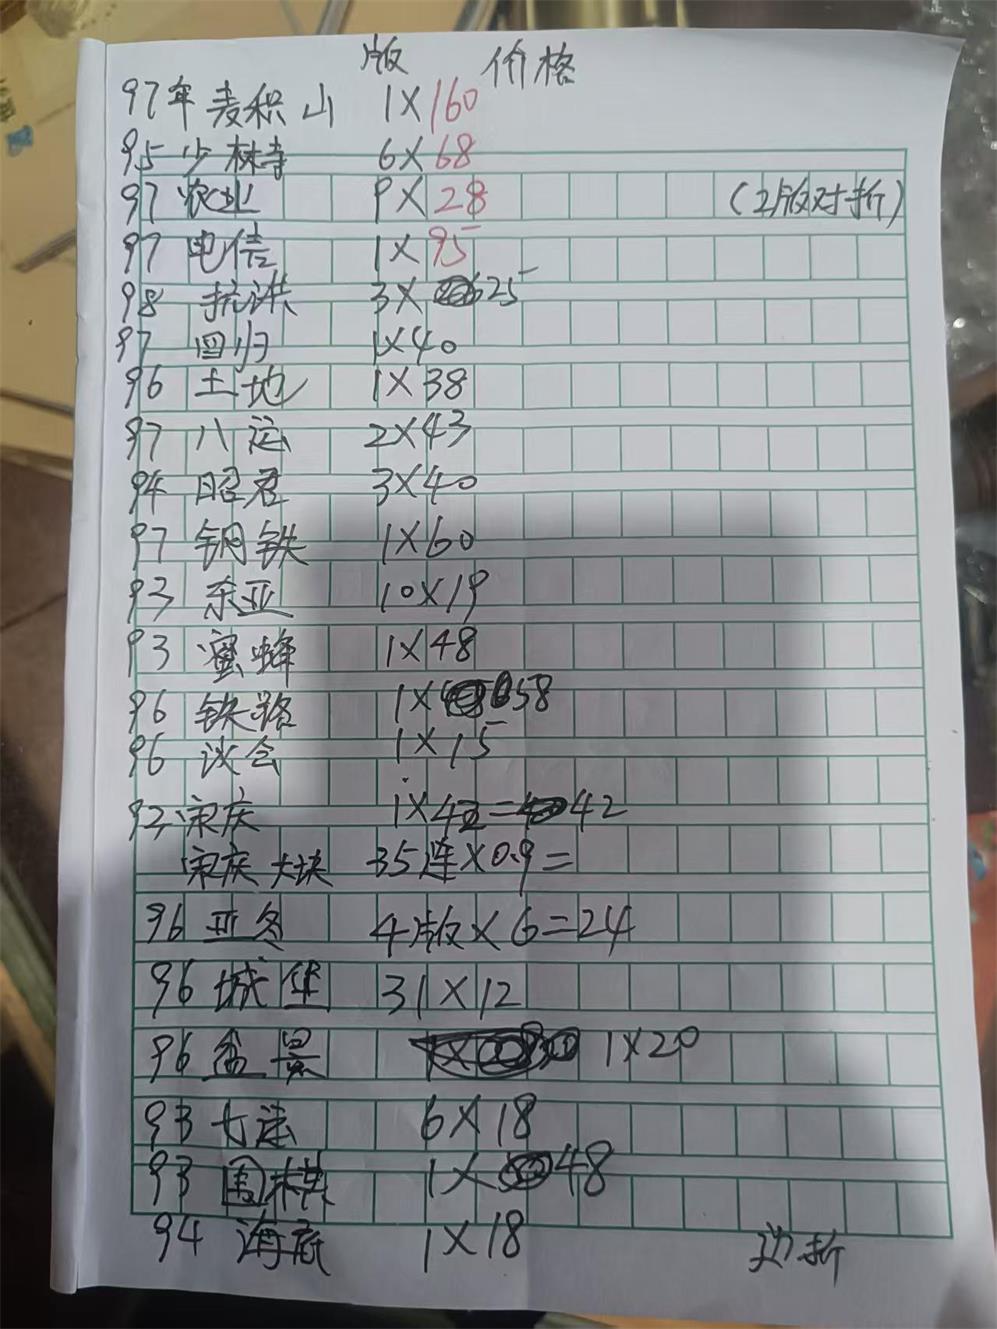 版 价格
97年麦积山 1×160
95少林寺 6×68
97农业 9×28 (2版对折)
97电信 1×95
98抗洪 3×25
97回归 1×40
96土地 1×38
97八运 2×43
94昭君 3×40
97钢铁 1×60
93东亚 10×19
93蜜蜂 1×48
96铁路 1×58
96议会 1×15
92宋庆 1×42=42
宋庆大块 35连×0.9=
96亚冬 4版×6=24
96城堡 31×12
96盆景 1×20
93七运 6×18
93围棋 1×48
94海底 1×18 边折